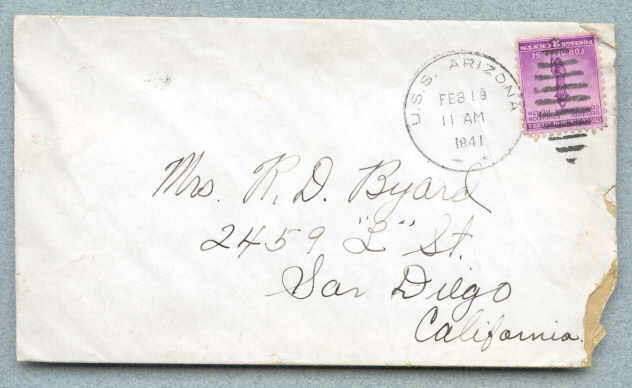 U.S.S. ARIZONA
FEB 19
11 AM
1941
Mrs. R. D. Byard
2459 "L" St.
San Diego
California.